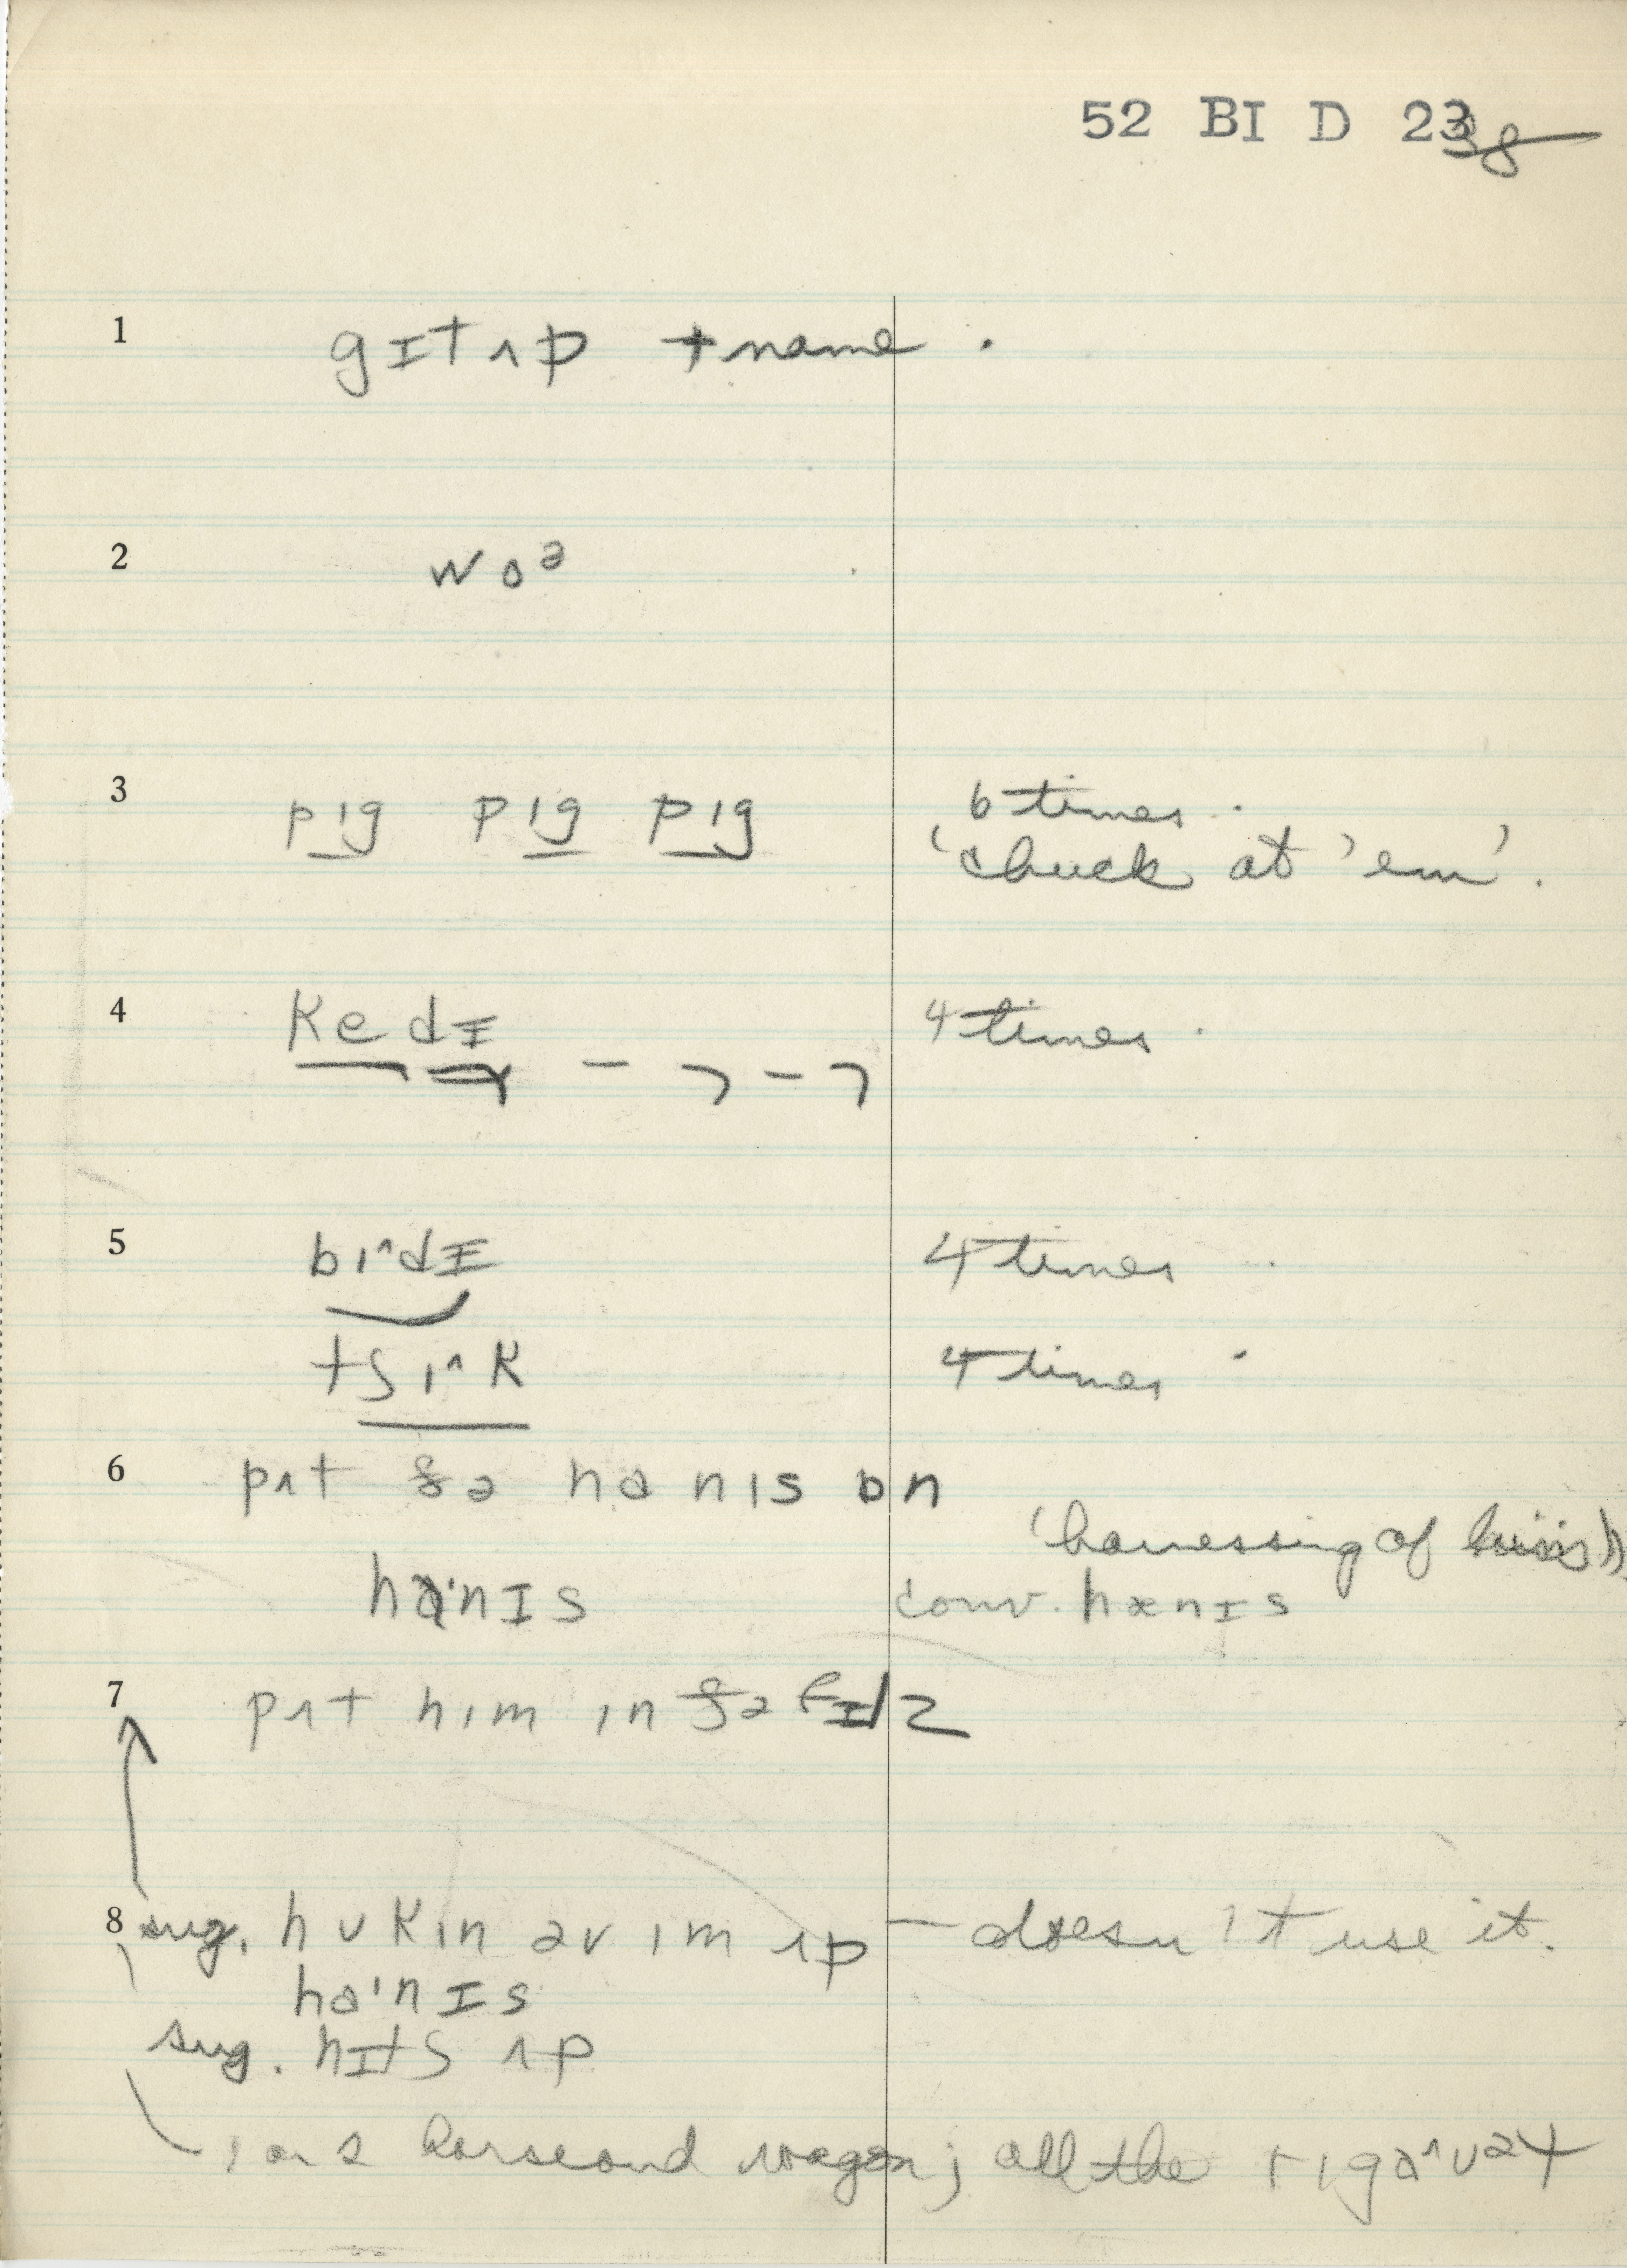 52 BI D 23
1 gɪtʌp + name.
2 woə
3 pɪg pɪg pɪg 6 times.
'chuck at 'em'.
4 kedɪ 4 times.
5 bɪ^dɪ 4 times
tʃɪ^k 4 times
6 pʌt ðə hanɪs ɒn
'harnessing of
haˑnɪs conv. hænɪs
7 pʌt hɪm ɪn ðə fɪlz
8 sug. hʊkɪn əv ɪm ʌp — doesn't use it.
haˑnɪs
sug. hɪtʃ ʌp
1 or 2 horse and wagon; all the